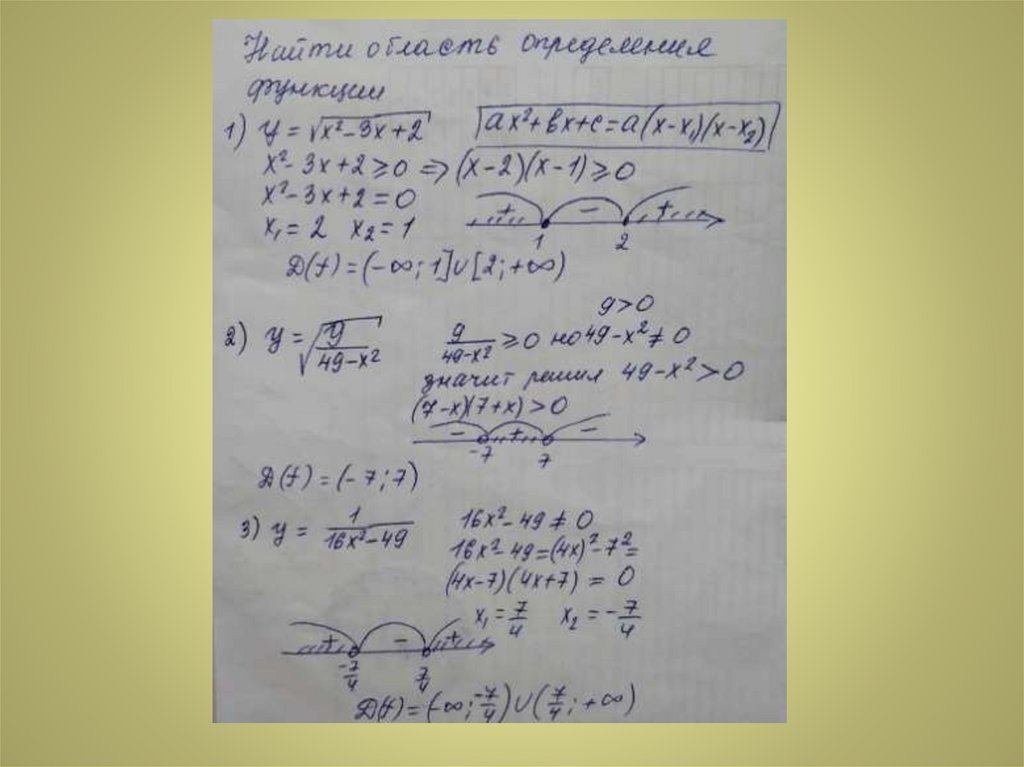 Найти область определения
функции
1) y = √x²-3x+2   ax²+bx+c=a(x-x₁)(x-x₂)
x²-3x+2≥0 ⇒ (x-2)(x-1)≥0
x²-3x+2=0
+ - +
x₁=2 x₂=1
1 2
D(f)=(-∞;1]∪[2;+∞)
9>0
2) y=√9/49-x²   9/49-x² ≥0 но 49-x²≠0
значит решил 49-x²>0
(7-x)(7+x)>0
- + -
-7 7
D(f)=(-7;7)
3) y = 1/16x²-49   16x²-49≠0
16x²-49=(4x)²-7²=
(4x-7)(4x+7) = 0
x₁=7/4 x₂=-7/4
+ - +
-7/4 7/4
D(f)=(-∞;-7/4)∪(7/4;+∞)